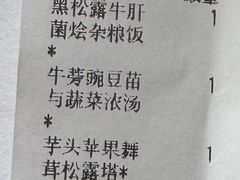 黑松露牛肝 1
菌烩杂粮饭
*
牛蒡豌豆苗 1
与蔬菜浓汤
*
芋头苹果舞 1
茸松露塔*